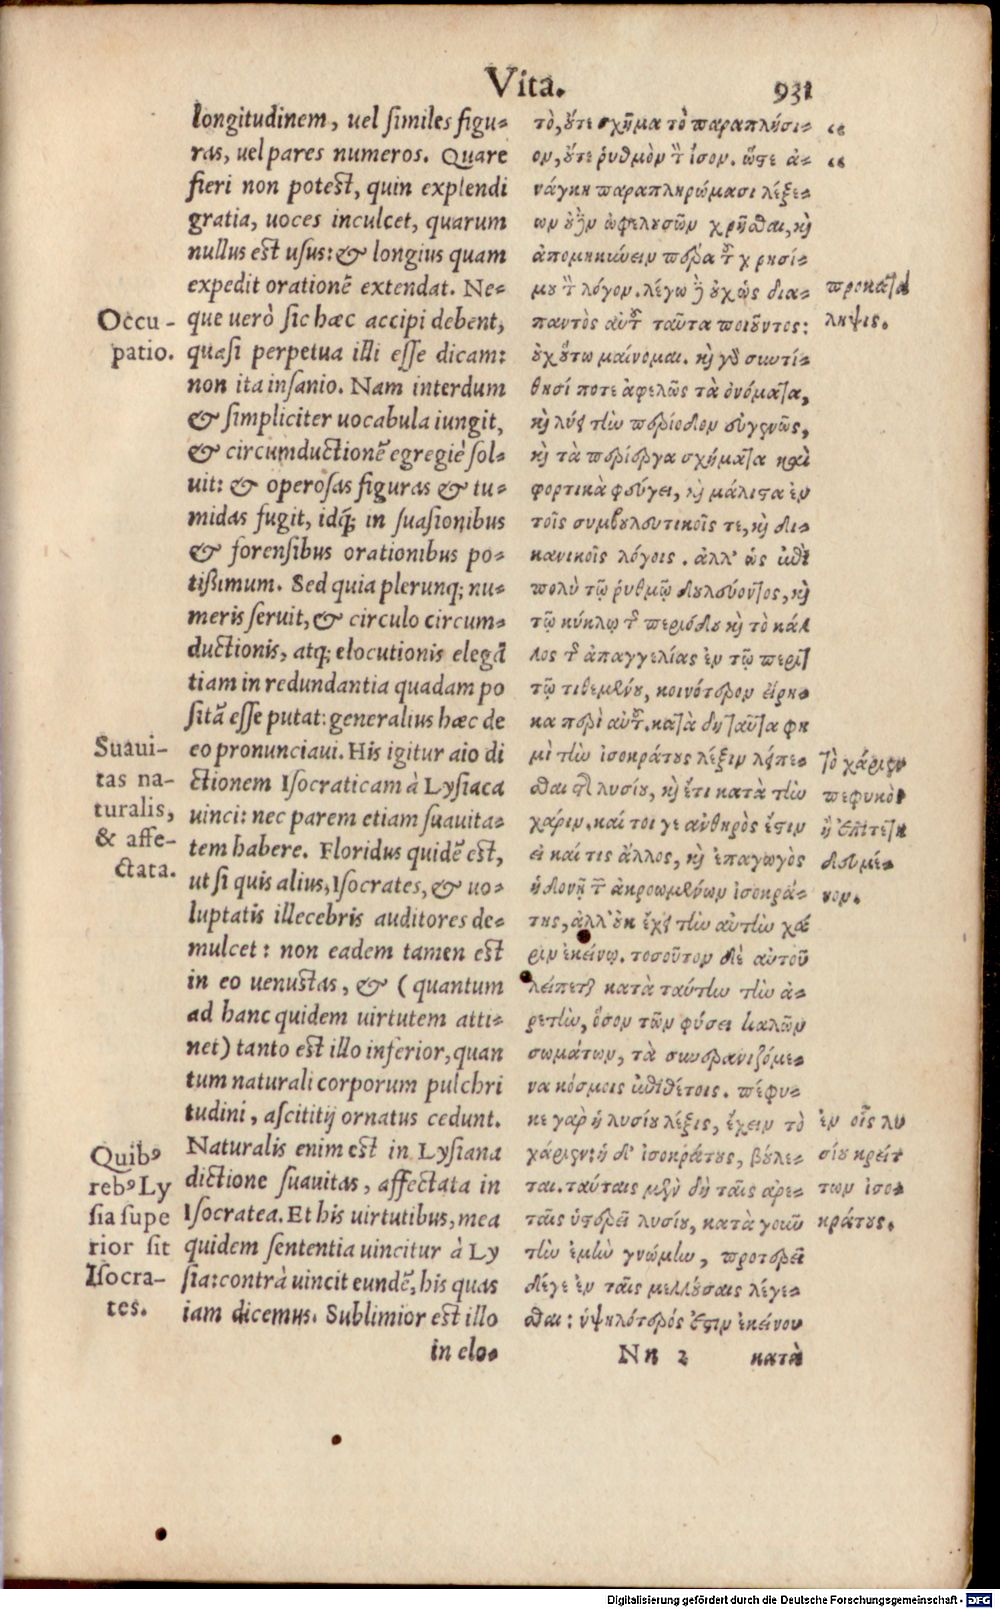 Vita. 931
longitudinem, uel ſimiles figu-
ras, uel pares numeros. Quare
fieri non poteſt, quin explendi
gratia, uoces inculcet, quarum
nullus eſt uſus: & longius quam
expedit orationē extendat. Ne-
que uerò ſic hæc accipi debent,
quaſi perpetua illi eſſe dicam:
non ita inſanio. Nam interdum
& ſimpliciter uocabula iungit,
& circumductionē egregiè ſol-
uit: & operoſas figuras & tu-
midas fugit, idq; in ſuaſionibus
& forenſibus orationibus po-
tißimum. Sed quia plerunq; nu-
meris ſeruit, & circulo circum-
ductionis, atq; elocutionis elegā
tiam in redundantia quadam po
ſitā eſſe putat: generalius hæc de
eo pronunciaui. His igitur aio di
ctionem Iſocraticam à Lyſiaca
uinci: nec parem etiam ſuauita-
tem habere. Floridus quidē eſt,
ut ſi quis alius, Iſocrates, & uo-
luptatis illecebris auditores de-
mulcet: non eadem tamen eſt
in eo uenuſtas, & (quantum
ad hanc quidem uirtutem atti-
net) tanto eſt illo inferior, quan
tum naturali corporum pulchri
tudini, aſcititij ornatus cedunt.
Naturalis enim eſt in Lyſiana
dictione ſuauitas, affectata in
Iſocratea. Et his uirtutibus, mea
quidem ſententia uincitur à Ly
ſia: contrà uincit eundē, his quas
iam dicemus. Sublimior eſt illo
in elo-
Occu-
patio.
Suaui-
tas na-
turalis,
& affe-
ctata.
Quibꝰ
rebꝰ Ly
ſia ſupe
rior ſit
Iſocra-
tes.
τὸ, ȣ́τε σχῆμα τὸ παραπλήσι-
ον, ȣ́τε ῥυθμὸν τ̀ ἴσον. ὥςε ἀ-
νάγκη παραπληρώμασι λέξε-
ων ȣ̓δὲν ὠφελȣσῶν χρῆσθαι, κὶ
ἀπομηκύνειν πέρα τȣ͂ χρησί-
μȣ τ̀ λόγον. λέγω δὲ ȣ̓χ ὡς δια-
παντὸς αὐτȣ͂ ταῦτα ποιȣ͂ντος:
ȣ̓χ ȣ́τω μαίνομαι. κὶ γὰρ συντί-
θησί ποτε ἀφελῶς τὰ ὀνόματα,
κὶ λύει τὴν περίοδον εὐγενῶς,
κὶ τὰ περίεργα σχήματα καὶ
φορτικὰ φεύγει, κὶ μάλιςα ἐν
τοῖς συμβȣλευτικοῖς τε, κὶ δι-
κανικοῖς λόγοις. ἀλλ' ὡς ἐπὶ
πολὺ τῷ ῥυθμῷ δȣλεύοντος, κὶ
τῷ κύκλῳ τ͂ περιόδȣ κὶ τὸ κάλ
λος τ͂ ἀπαγγελίας ἐν τῷ περιτ
τῷ τιθεμένȣ, κοινότερον εἴρη-
κα περὶ αὐτȣ͂. κατὰ δὴ ταῦτα φη
μὶ τὴν ἰσοκράτȣς λέξιν λείπε-
σθαι τ͂ λυσίȣ, κὶ ἔτι κατὰ τὴν
χάριν. καί τοι γε ἀνθηρὸς ἔςιν
εἰ καί τις ἄλλος, κὶ ἐπαγωγὸς
ἡδονῇ τ͂ ἀκροωμένων ἰσοκρά-
της, ἀλλ' ȣ̓κ ἔχει τὴν αὐτὴν χά
ριν ἐκείνῳ. τοσοῦτον δὲ αὐτοῦ
λείπεται κατὰ ταύτην τὴν ἀ-
ρετὴν, ὅσον τῶν φύσει καλῶν
σωμάτων, τὰ συνερανιζόμε-
να κόσμοις ἐπιθέτοις. πέφυ-
κε γαρ ἡ λυσίȣ λέξις, ἔχειν τὸ
χάριεν: ἡ δ' ἰσοκράτȣς, βȣ́λε-
ται. ταύταις μὲν δὴ ταῖς ἀρε-
ταῖς ὑςερεῖ λυσίȣ, κατὰ γοῦν
τὴν ἐμὴν γνώμην, προτερεῖ
δέγε ἐν ταῖς μελλȣ́σαις λέγε-
σθαι: ὑψηλότερός ἐςιν ἐκείνου
Nn 2 κατὰ
προκατά
ληψις.
τὸ χάριεν
πεφυκὸς
ἢ ἐπιτετη
δευμέ-
νον.
ἐν οἷς λυ
σίȣ κρείτ
των ἰσο-
κράτȣς.
Digitalisierung gefördert durch die Deutsche Forschungsgemeinschaft - DFG